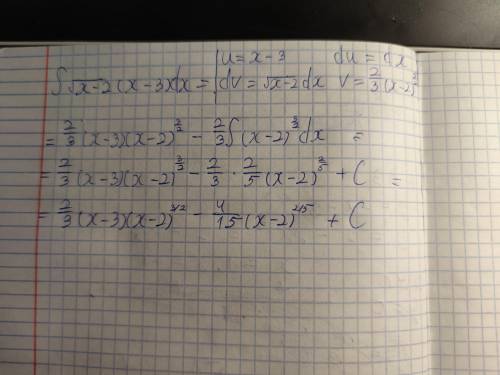 ∫√x-2 (x-3)dx = | u = x-3 du = dx
| dv = √x-2 dx v = 2/3 (x-2)^3/2
= 2/3 (x-3)(x-2)^3/2 - 2/3 ∫(x-2)^3/2 dx =
= 2/3 (x-3)(x-2)^3/2 - 2/3 · 2/5 (x-2)^2/5 + C =
= 2/3 (x-3)(x-2)^3/2 - 4/15 (x-2)^2/5 + C